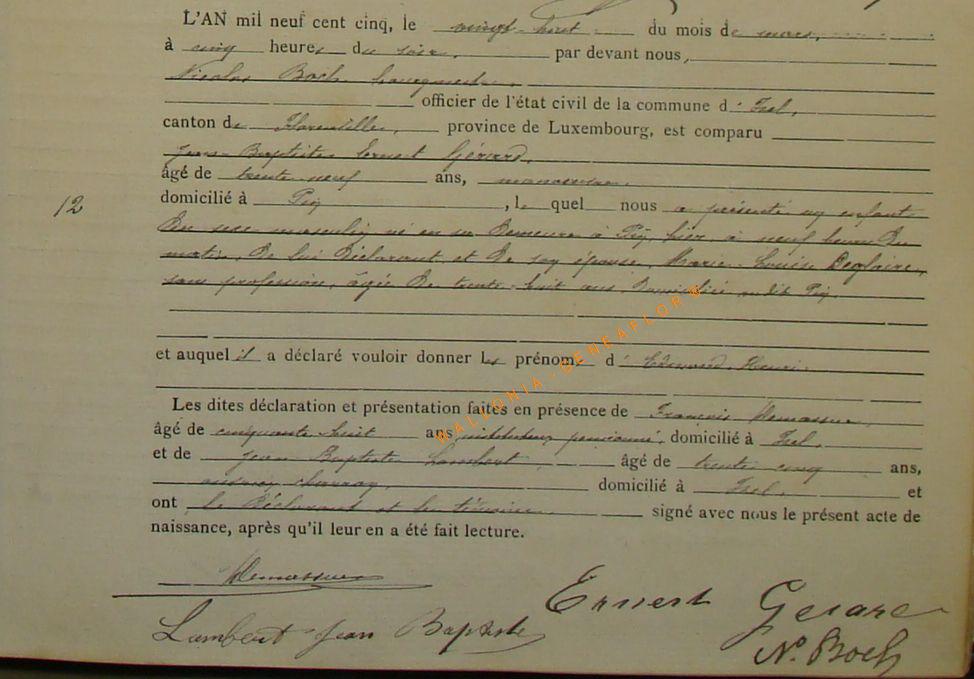 L'AN mil neuf cent cinq, le vingt-huit du mois de mars,
à cinq heures du soir, par devant nous,
Nicolas Boch, bourgmestre,
officier de l'état civil de la commune d'Izel,
canton de Florenville, province de Luxembourg, est comparu
Jean-Baptiste Ernest Gérard,
âgé de trente-neuf ans, manœuvre,
12
domicilié à Pin, lequel nous a présenté un enfant
du sexe masculin né en sa demeure à Pin, hier, à neuf heures du
matin, de lui déclarant et de son épouse, Marie-Louise Deglaire,
sans profession, âgée de trente-huit ans, domiciliée au dit Pin.
WALLONIA-GENEAFLOR
et auquel il a déclaré vouloir donner les prénoms d'Edmond Henri.
Les dites déclaration et présentation faites en présence de François
âgé de cinquante-huit ans instituteur pensionné, domicilié à Izel,
et de Jean Baptiste Lambert, âgé de trente-cinq ans,
domicilié à Izel, et
ont le déclarant et les témoins signé avec nous le présent acte de
naissance, après qu'il leur en a été fait lecture.
Ernest Gerard
Lambert Jean Baptiste
N. Boch